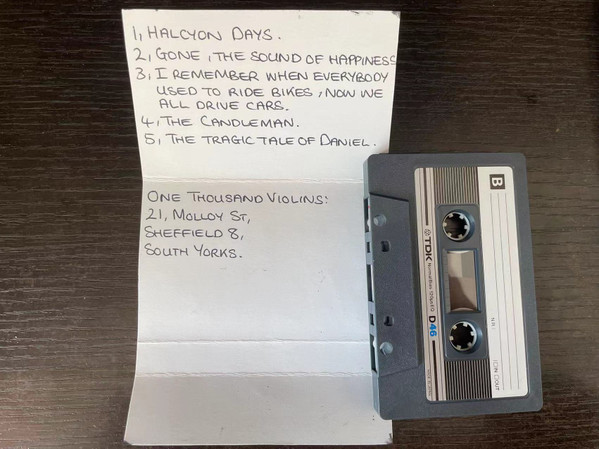 1, HALCYON DAYS.
2, GONE, THE SOUND OF HAPPINESS
3, I REMEMBER WHEN EVERYBODY
USED TO RIDE BIKES, NOW WE
ALL DRIVE CARS.
4, THE CANDLEMAN.
5, THE TRAGIC TALE OF DANIEL.
ONE THOUSAND VIOLINS:
21, MOLLOY ST,
SHEFFIELD 8,
SOUTH YORKS.
B
TDK D46
N.R.